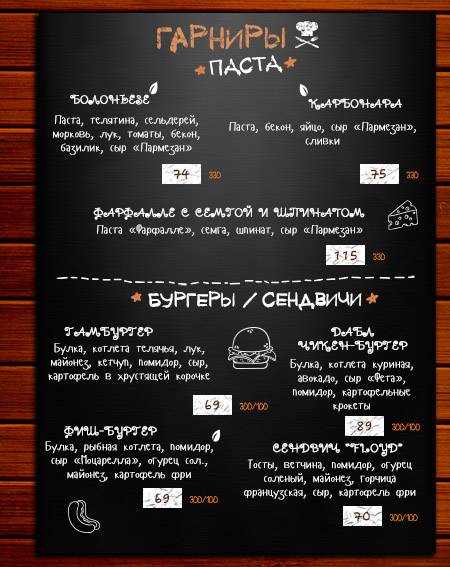 ГАРНИРЫ
ПАСТА
БОЛОНЬЕЗЕ
Паста, телятина, сельдерей,
морковь, лук, томаты, бекон,
базилик, сыр «Пармезан»
74 330
КАРБОНАРА
Паста, бекон, яйцо, сыр «Пармезан»,
сливки
75 330
ФАРФАЛЛЕ С СЕМГОЙ И ШПИНАТОМ
Паста «Фарфалле», семга, шпинат, сыр «Пармезан»
115 330
БУРГЕРЫ / СЕНДВИЧИ
ГАМБУРГЕР
Булка, котлета телячья, лук,
майонез, кетчуп, помидор, сыр,
картофель в хрустящей корочке
69 300/100
ДАБЛ
ЧИКЕН-БУРГЕР
Булка, котлета куриная,
авокадо, сыр «Фета»,
помидор, картофельные
крокеты
89 300/100
ФИШ-БУРГЕР
Булка, рыбная котлета, помидор,
сыр «Моцарелла», огурец сол.,
майонез, картофель фри
69 300/100
СЕНДВИЧ "FLOYD"
Тосты, ветчина, помидор, огурец
соленый, майонез, горчица
французская, сыр, картофель фри
70 300/100